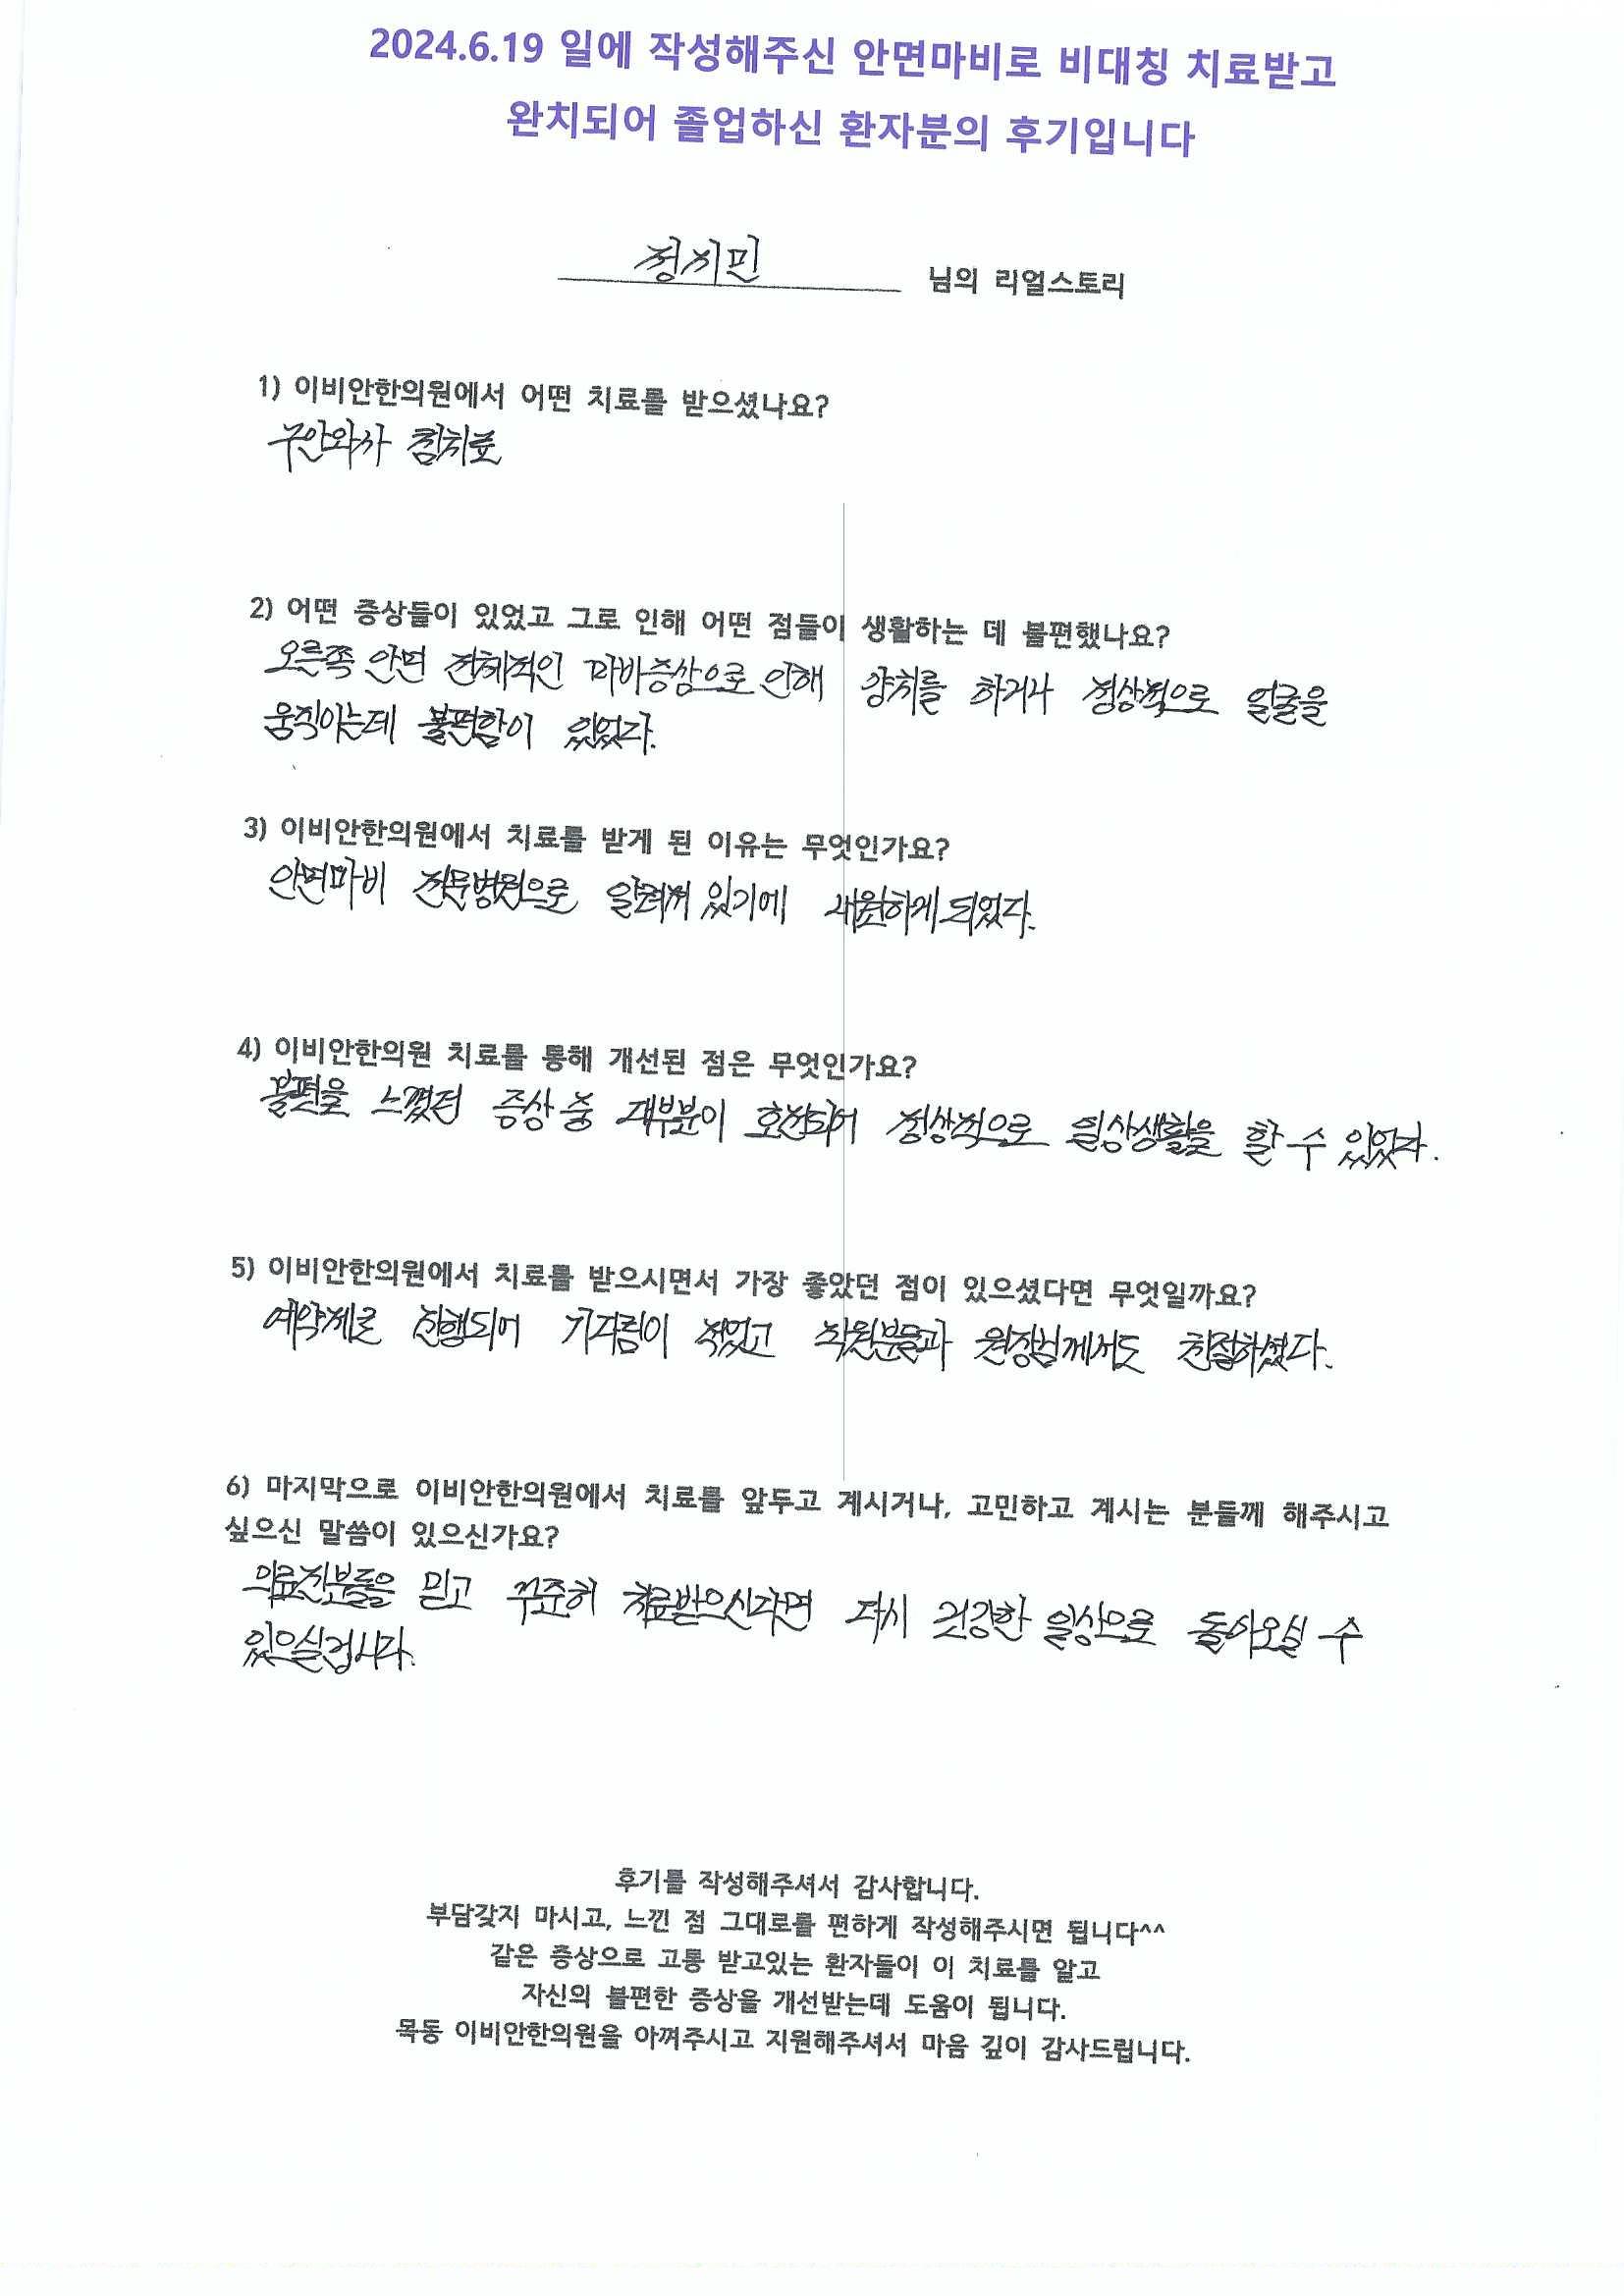 2024.6.19 일에 작성해주신 안면마비로 비대칭 치료받고
완치되어 졸업하신 환자분의 후기입니다
정지민 님의 리얼스토리
1) 이비안한의원에서 어떤 치료를 받으셨나요?
구안와사 침치료
2) 어떤 증상들이 있었고 그로 인해 어떤 점들이 생활하는 데 불편했나요?
오른쪽 안면 전체적인 마비증상으로 인해 양치를 하거나 정상적으로 얼굴을
움직이는데 불편함이 있었다.
3) 이비안한의원에서 치료를 받게 된 이유는 무엇인가요?
안면마비 전문병원으로 알려져 있기에 내원하게 되었다.
4) 이비안한의원 치료를 통해 개선된 점은 무엇인가요?
불편을 느꼈던 증상 중 대부분이 호전되어 정상적으로 일상생활을 할 수 있었다.
5) 이비안한의원에서 치료를 받으시면서 가장 좋았던 점이 있으셨다면 무엇일까요?
예약제로 진행되어 기다림이 적었고 직원분들과 원장님께서도 친절하셨다.
6) 마지막으로 이비안한의원에서 치료를 앞두고 계시거나, 고민하고 계시는 분들께 해주시고
싶으신 말씀이 있으신가요?
의료진분들을 믿고 꾸준히 치료받으신다면 다시 건강한 일상으로 돌아오실 수
있으실겁니다.
후기를 작성해주셔서 감사합니다.
부담갖지 마시고, 느낀 점 그대로를 편하게 작성해주시면 됩니다^^
같은 증상으로 고통 받고있는 환자들이 이 치료를 알고
자신의 불편한 증상을 개선받는데 도움이 됩니다.
목동 이비안한의원을 아껴주시고 지원해주셔서 마음 깊이 감사드립니다.